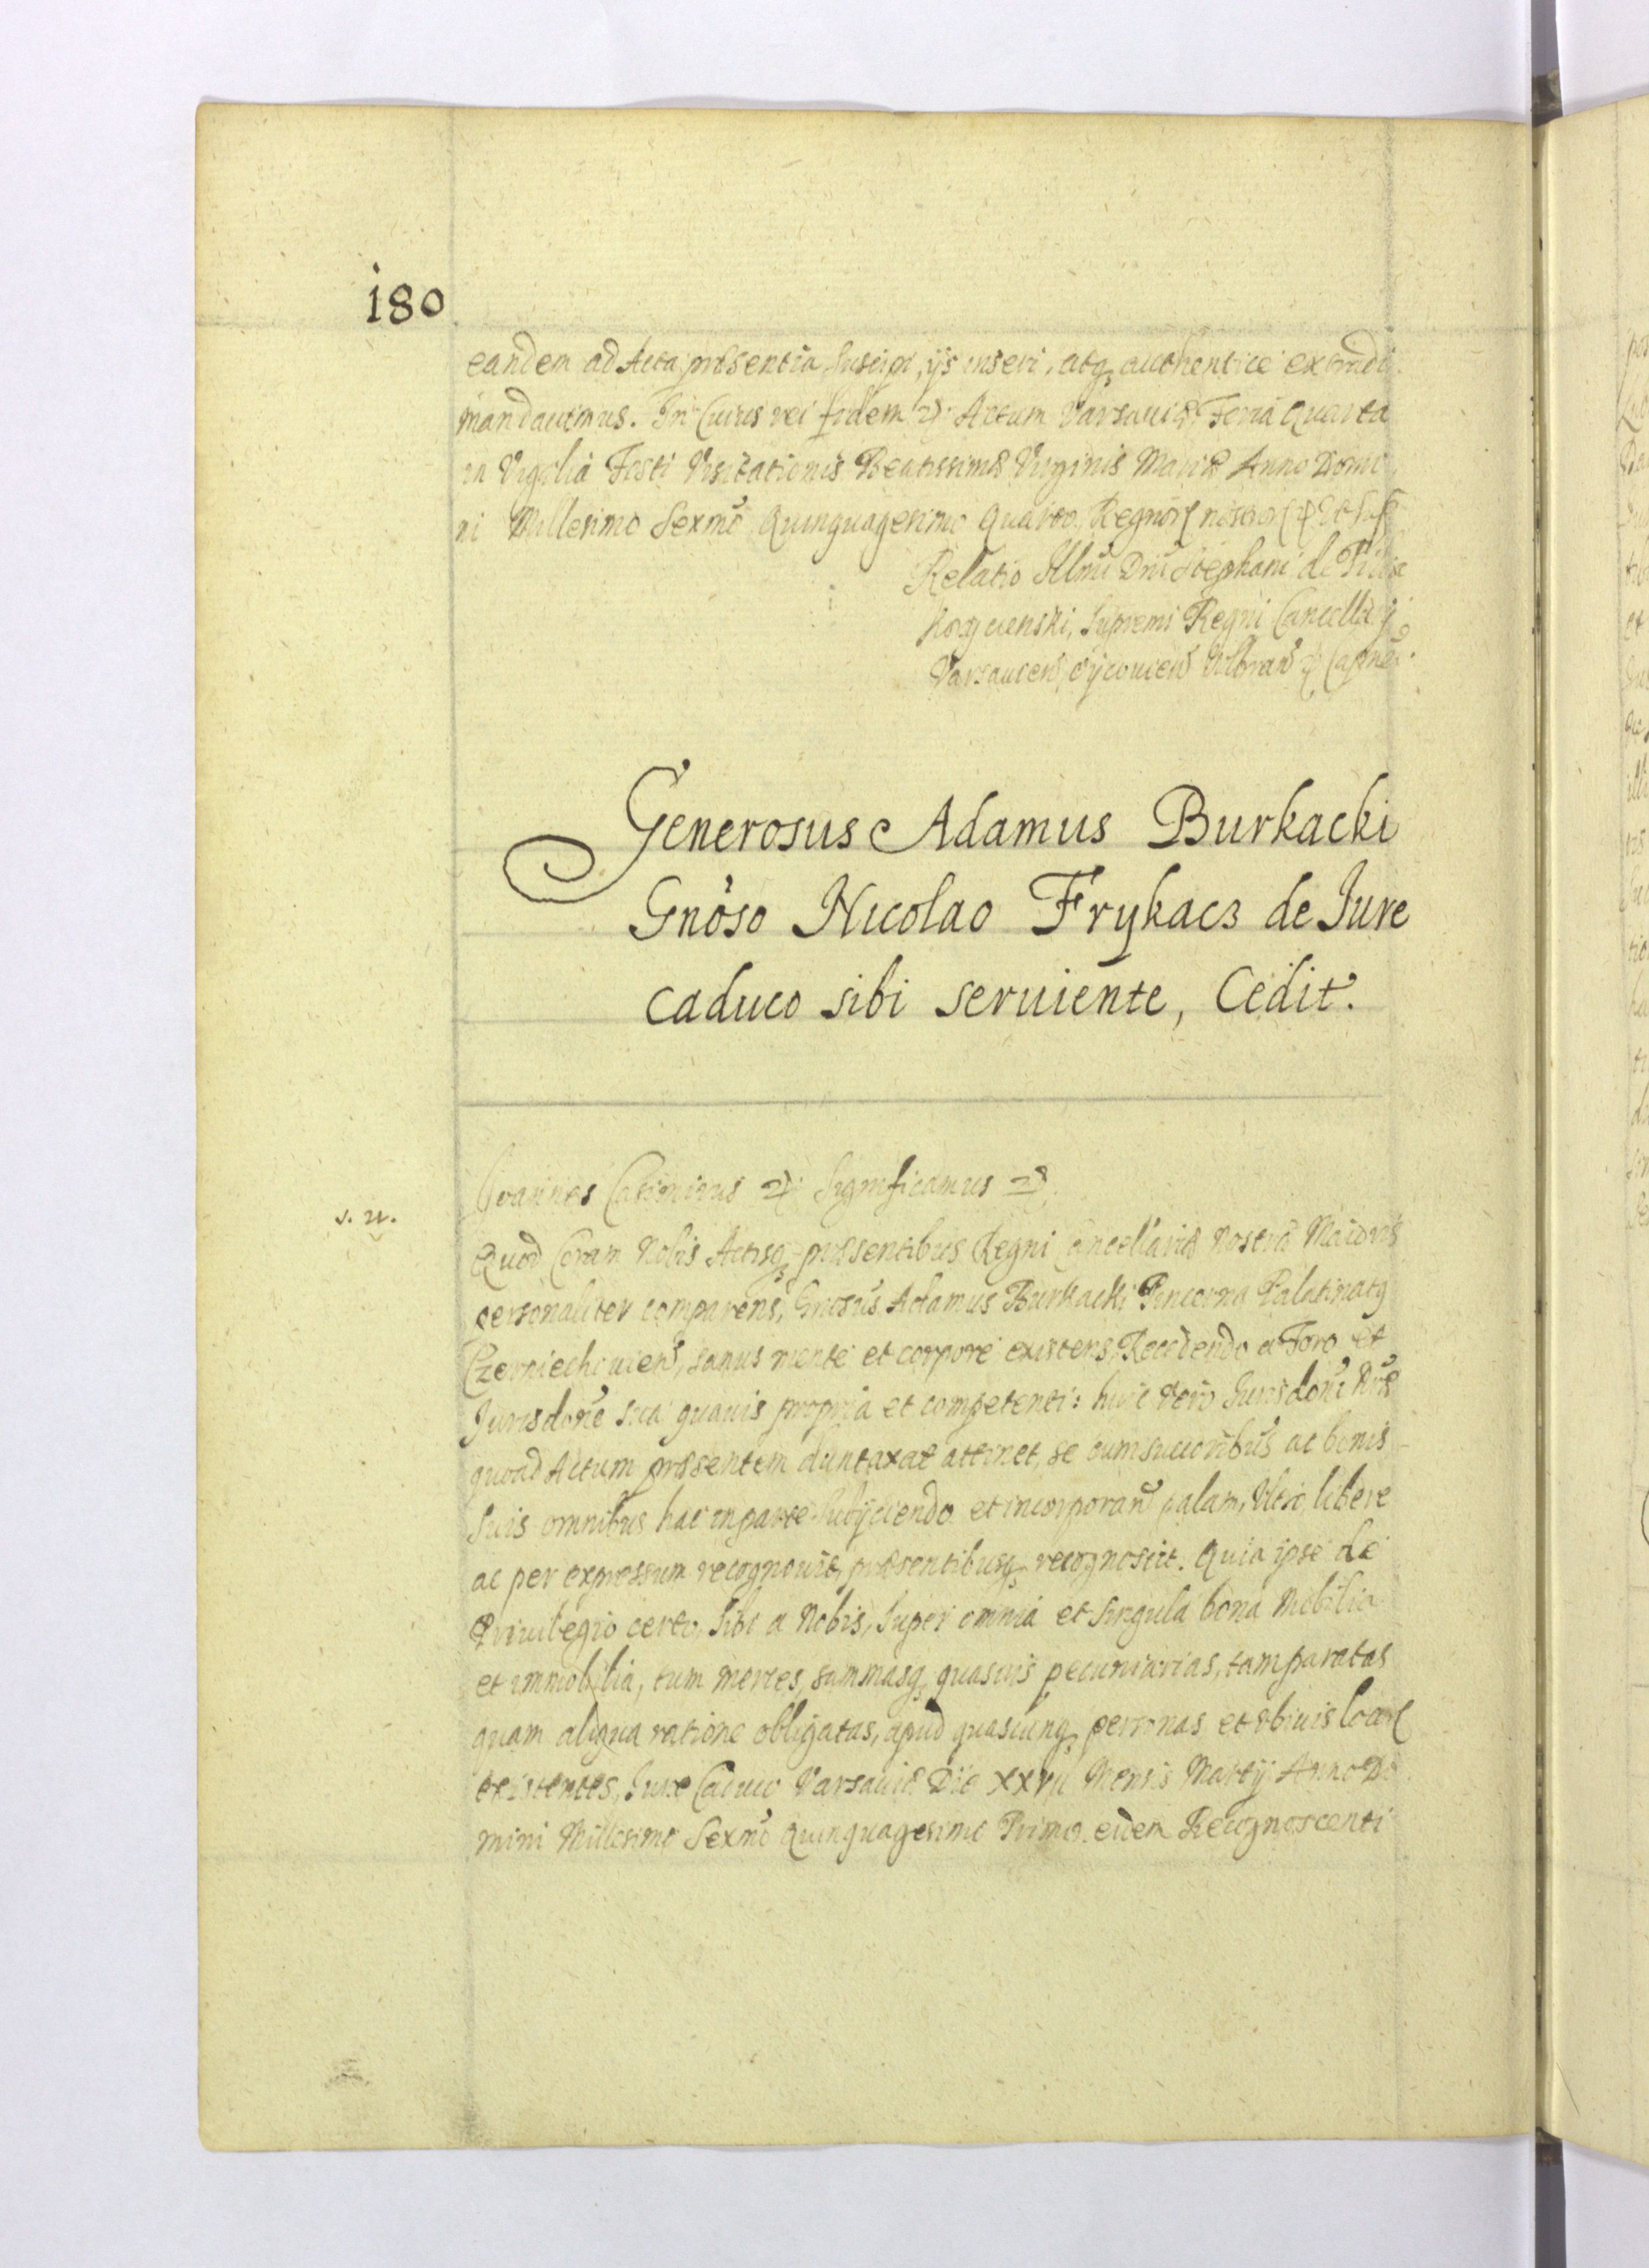 180
eandem ad Acta præsentia suscipi, ijs inseri, atq, authentice extradi
mandauimus. In Cuius rei fidem etc. Actum Varsauiæ Feria Quarta
in Vigilia Festi Visitationis Beatissimæ Virginis Mariæ Anno Domi
ni Millesimo Sexmo Quinquagesimo Quarto, Regnor nostror etc
Relatio Illmi Dni Stephani de Pilca
Korycienski, Supremi Regni Cancellarij,
Varsauien, Oycouien Capnei.
Generosus Adamus Burkacki
Gnoso Nicolao Frykacz de Iure
caduco sibi seruiente, Cedit.
Ioannes Casimirus etc Significamus etc
Quod Coram Nobis Actisq præsentibus Regni Cancellariæ Nostræ Maioris
personaliter comparens, Gnosus Adamus Burkacki Pincerna Palatinatq
Czerniechouien, sanus mente et corpore existens, Recedendo a Foro et
Jurisdone sua quauis propria et competenti: huic vero Jurisdoni Nræ
quoad Actum præsentem duntaxat attinet, se cum succoribus ac bonis
suis omnibus hac in parte subijciendo et incorporan palam, Vltro, libere
ac per expressum recognouit, præsentibusq recognoscit. Quia ipse de
Priuilegio certo, sibi a Nobis, super omnia et singula bona Mobilia
et immobilia, tum merces, summasq, quasuis pecuniarias, tam paratas
quam aliqua ratione obligatas, apud quascunq personas et vbiuis locor
existentes, Iure Caduco Varsauiæ Die XXVII Mensis Martij Anno Do
mini Millesimo Sexmo Quinquagesimo Primo. eidem Recognoscenti